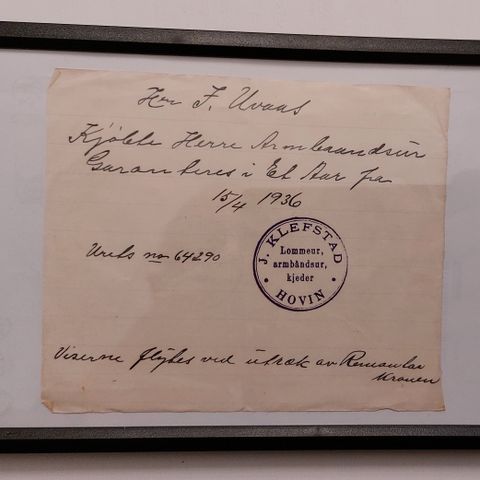 Herr F. Uvaas
Kjöbte Herre Armbaandsur
Garanteres i Et Aar fra
15/4 1936
Urets no 64290
J. KLEFSTAD
Lommeur,
armbåndsur,
kjeder
HOVIN
Viserne flyttes ved útræk av Remontoir
Kronen